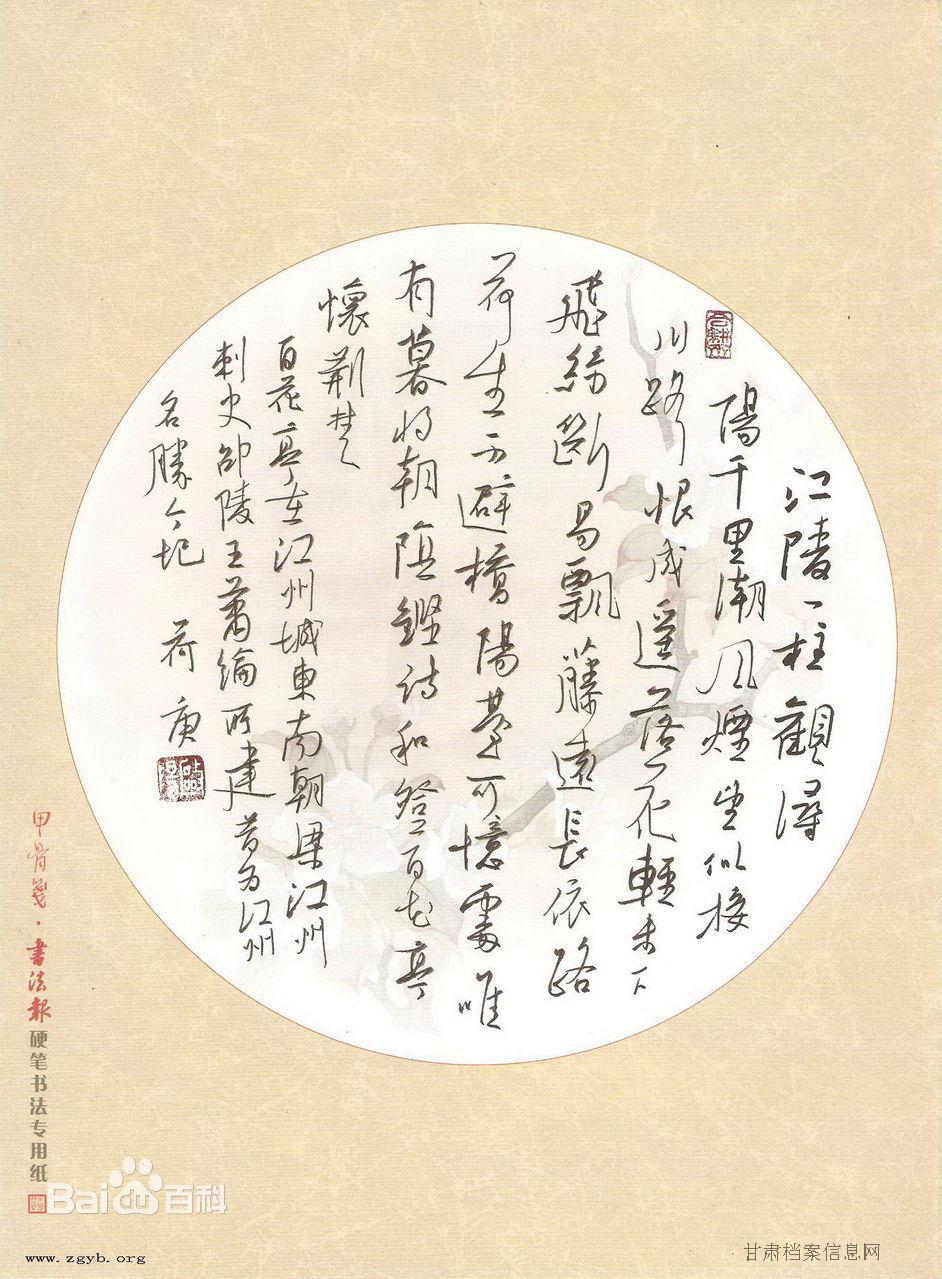 江陵一柱觀潯
陽千里潮风煙坐似接
川路恨成遥落花輕未下
飛絲斷易飄藤長依
荷生不避橋陽臺可憶處唯
有暮將朝陰鏗詩和登百花亭
懷荆楚
百花亭在江州城東南朝梁江州
刺史邵陵王蕭綸所建昔为江州
名勝今圮 荷庚
甲骨笺·書法報硬笔书法专用纸
Bai du 百科
www.zgyb.org
甘肃档案信息网